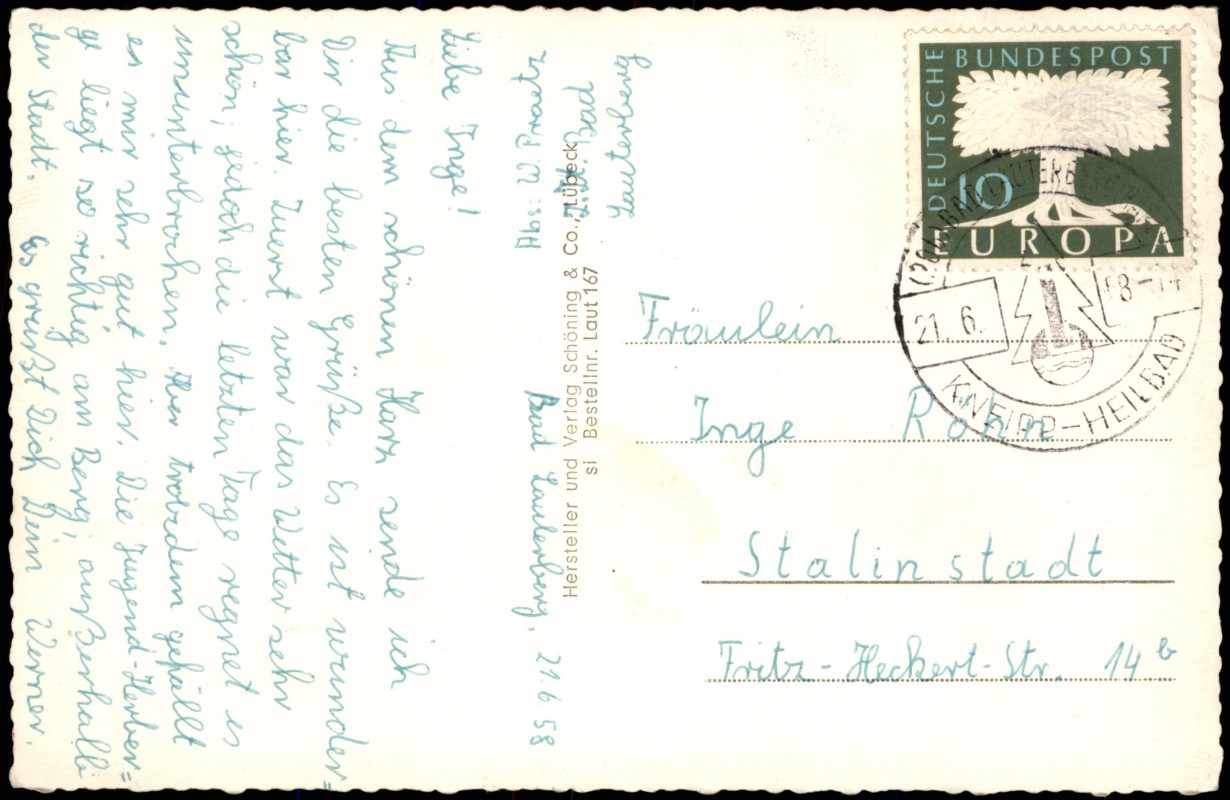 Absd: W. Franke
z.Zt. Bad
Lauterberg
Bad Lauterberg, 21.6 58
Liebe Inge!
Aus dem schönen Harz sende ich
Dir die besten Grüße. Es ist wunder=
bar hier. Zuerst war das Wetter sehr
schön; jedoch die letzten Tage regnet es
ununterbrochen. Aber trotzdem gefällt
es mir sehr gut hier. Die Jugend-Herber=
ge liegt so richtig am Berg, außerhalb
der Stadt. Es grüßt Dich Dein Werner.
Hersteller und Verlag Schöning & Co., Lübeck
si Bestellnr. Laut 167
DEUTSCHE BUNDESPOST
10
EUROPA
BAD LAUTERBERG
21. 6.
KNEIPP-HEILBAD
Fräulein
Inge Röhn
Stalinstadt
Fritz-Heckert-Str. 14b